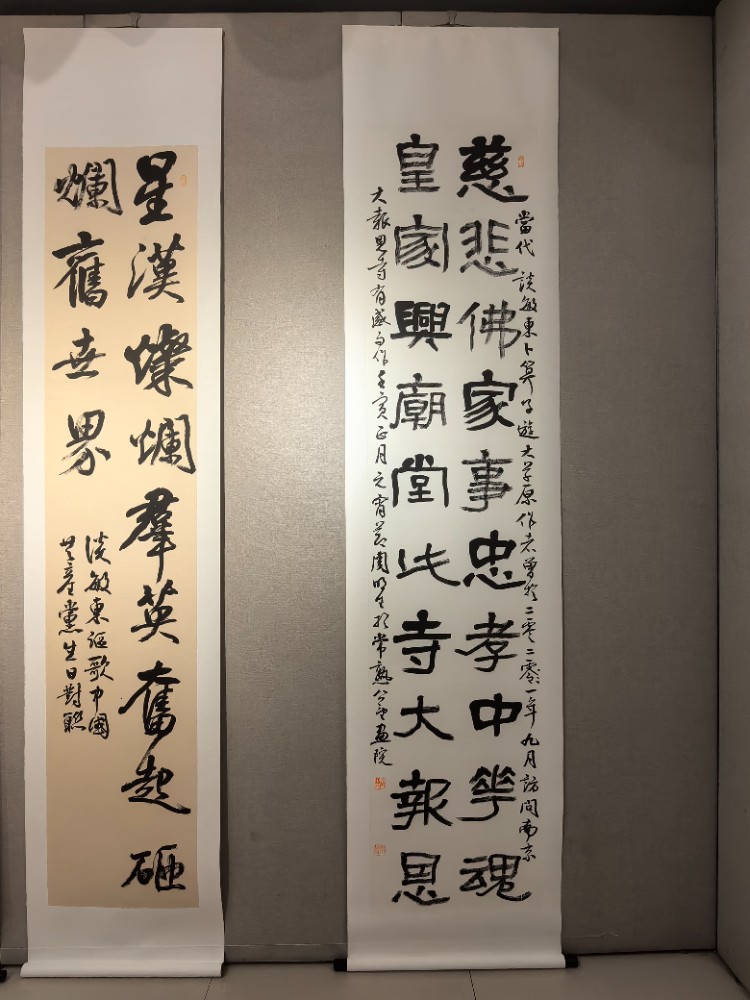 當代談敏東卜算子遊大草原作者曾於二零二零一年九月訪問南京
慈悲佛家事忠孝中華魂
皇家興廟堂此寺大報恩
大報恩寺有感而作壬寅正月元宵節周明生於常熟公望画院
星漢燦爛羣英奮起砸
爛舊世界
談敏東謳歌中國
共產黨生日對聯